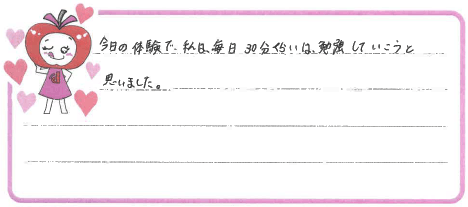 今日の体験で、私は、毎日30分くらいは、勉強していこうと
思いました。